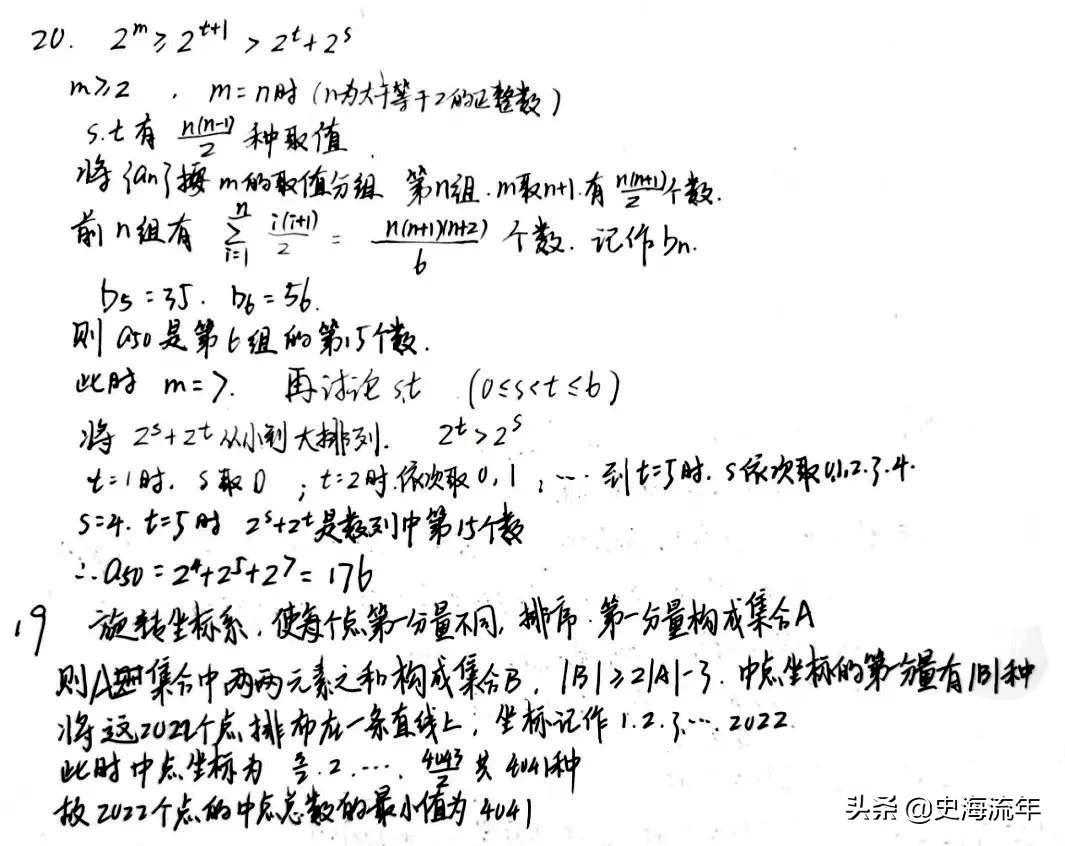 20. 2^m ≥ 2^{t+1} > 2^t + 2^s
m≥2 , m=n时 (n为大于等于2的正整数)
s.t有 n(n-1)/2 种取值
将{an}按m的取值分组 第n组.m取n+1.有 n(n+1)/2 个数.
前n组有 ∑_{i=1}^{n} i(i+1)/2 = n(n+1)(n+2)/6 个数. 记作bn.
b5=35. b6=56.
则 a50是第6组的第15个数.
此时 m=7. 再讨论s,t (0≤s<t≤6)
将 2^s+2^t从小到大排列. 2^t>2^s
t=1时. s取0 ; t=2时.依次取0,1 , … 到t=5时. s依次取0,1,2.3.4.
s=4. t=5时 2^s+2^t是数列中第15个数
∴a50=2^4+2^5+2^7=176
19 旋转坐标系,使每个点第一分量不同,排序.第一分量构成集合A
则A集合中两两元素之和构成集合B, |B|≥2|A|-3. 中点坐标的第一分量有|B|种
将这2022个点排布在一条直线上,坐标记作1.2.3.….2022.
此时中点坐标为 3/2.2.…. 4043/2 共4041种
故2022个点的中点总数的最小值为4041
头条 @史海流年